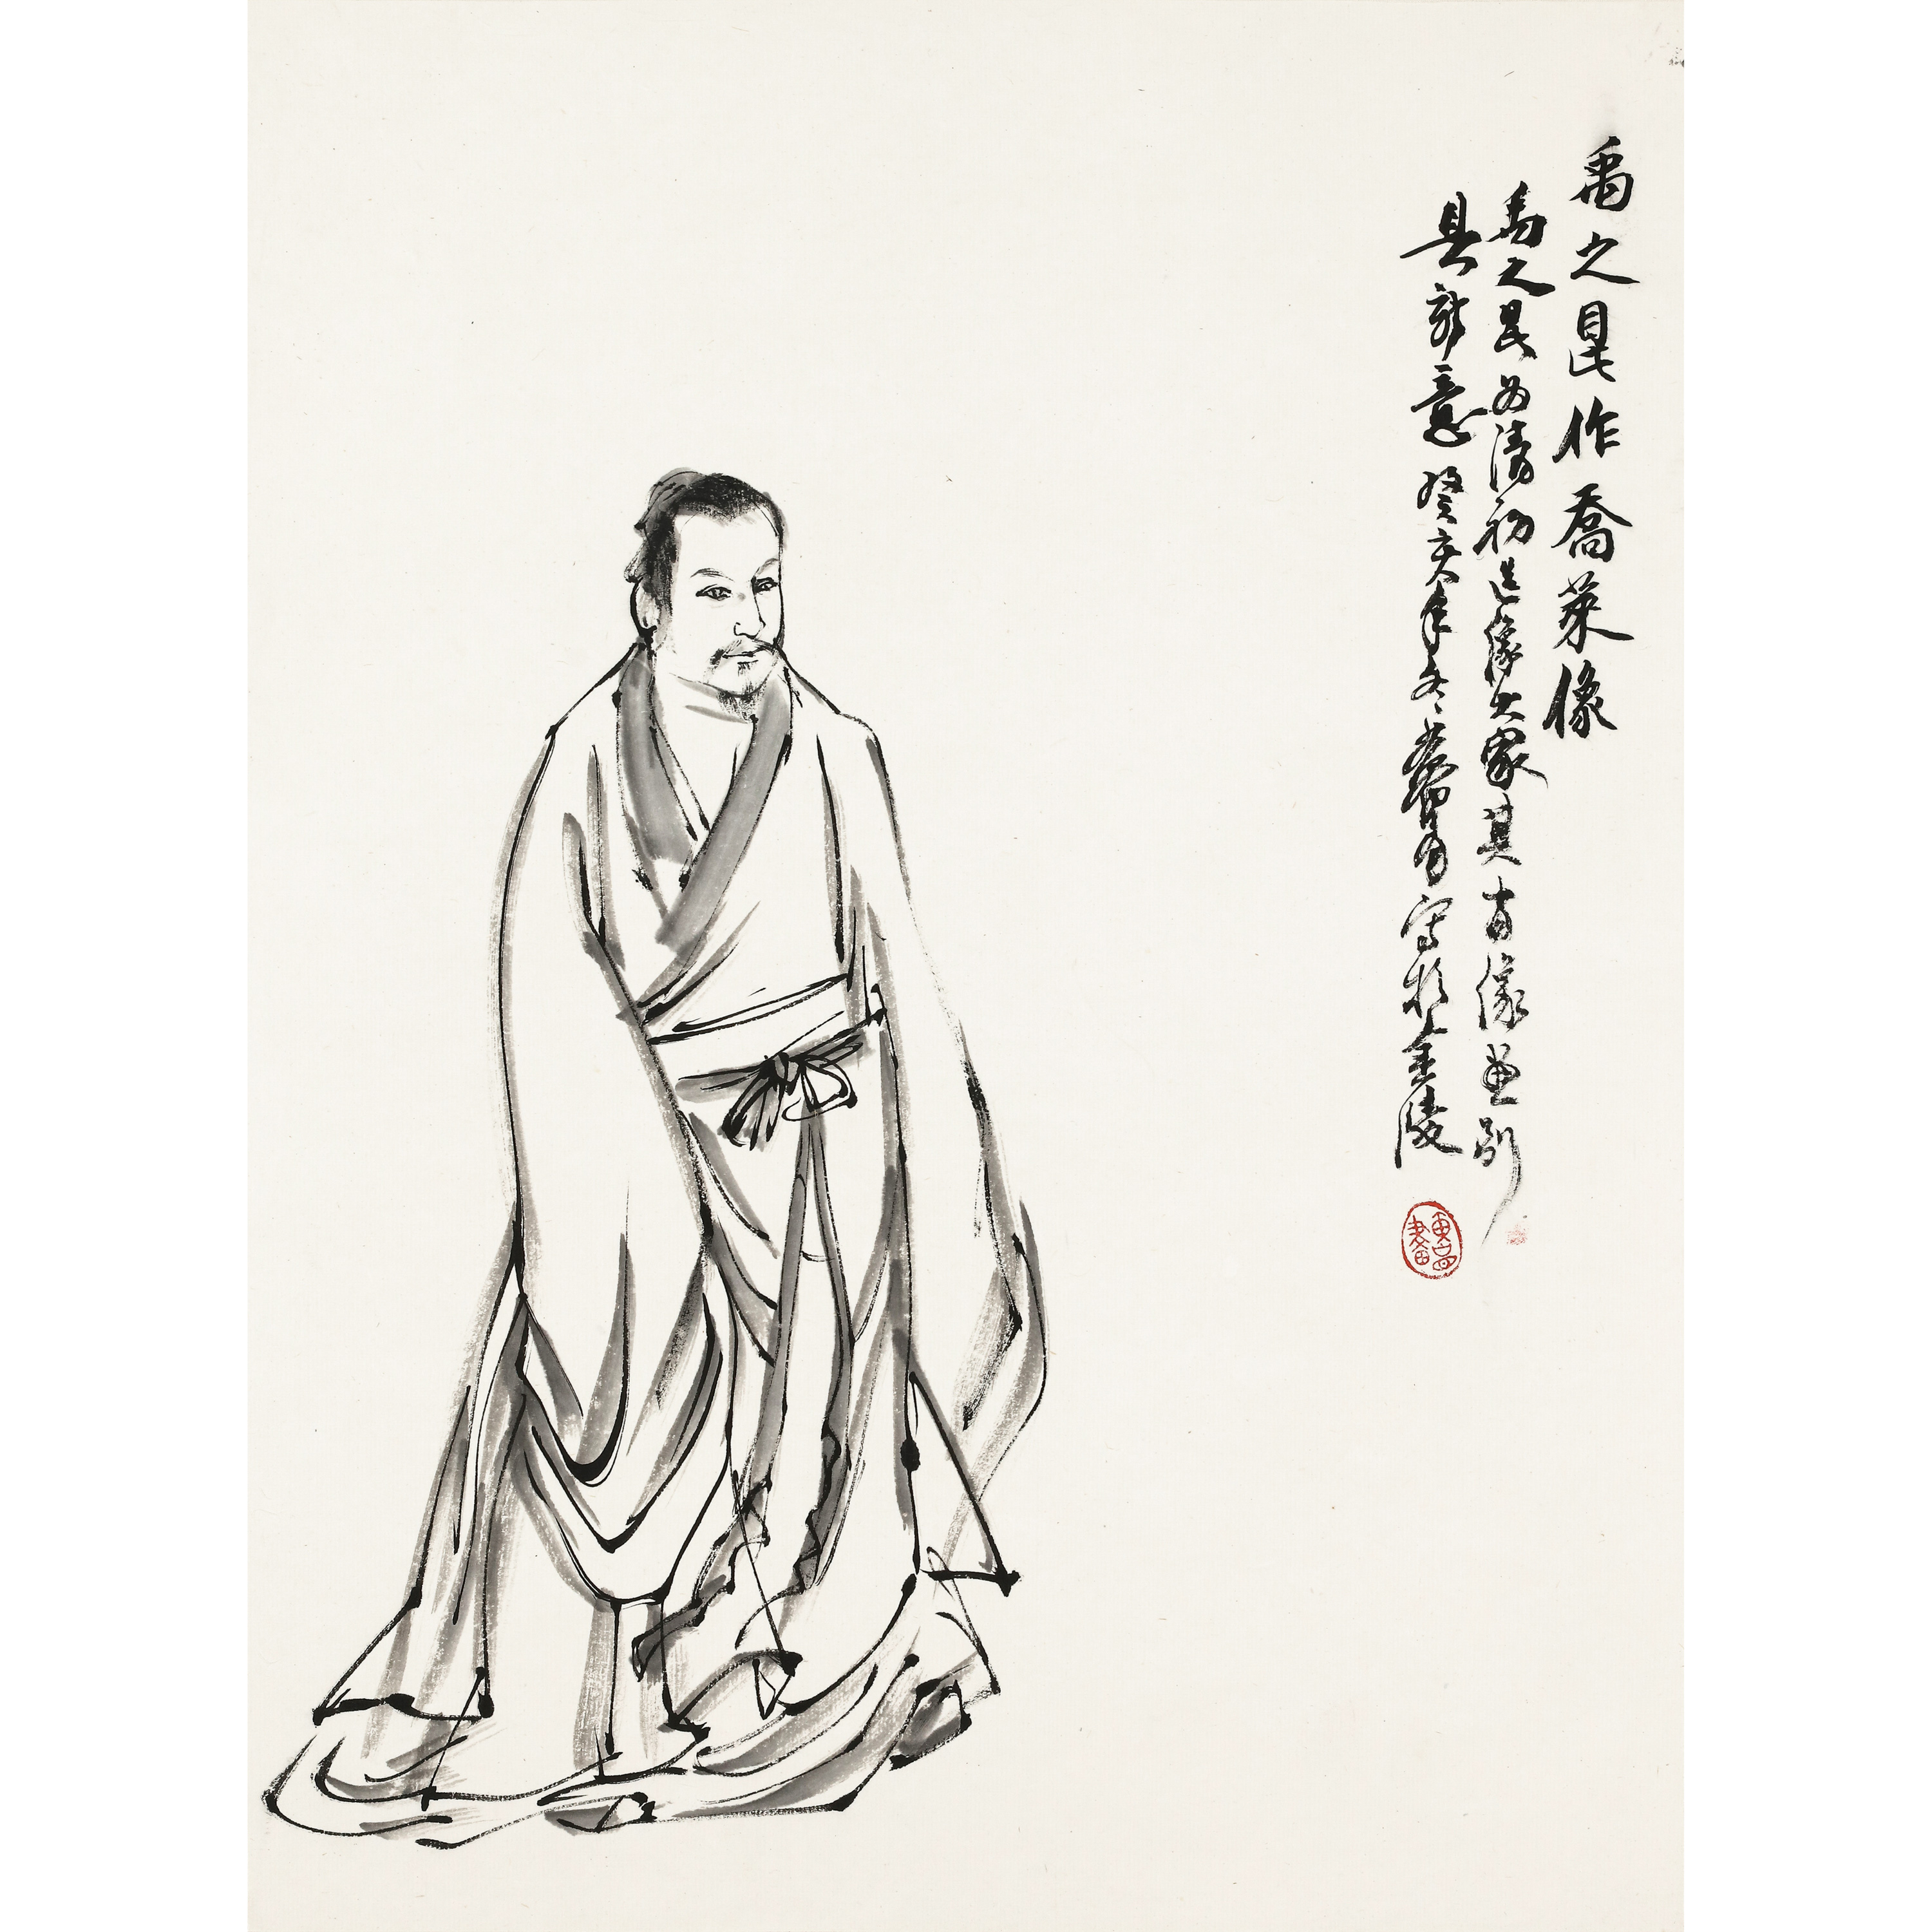 禹之鼎作喬萊像
禹之鼎為清初造像大家其古像画别
具新意癸亥年冬 寫於金陵